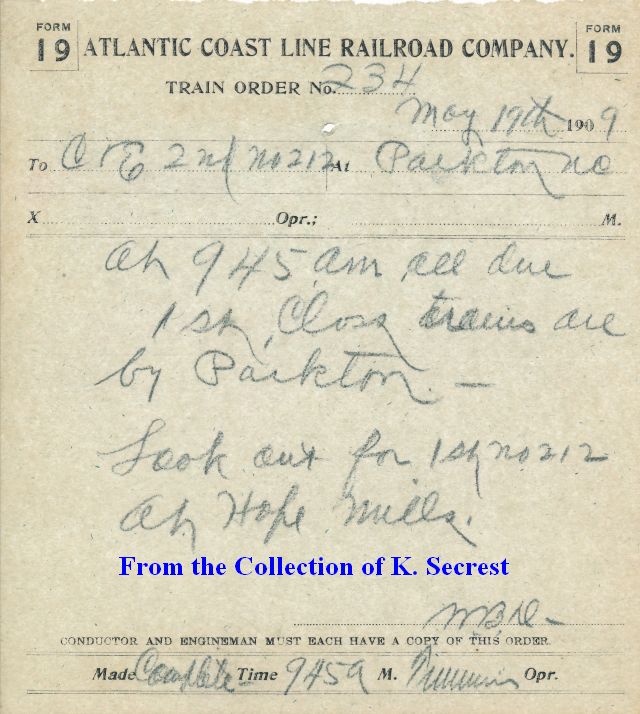 FORM 19 ATLANTIC COAST LINE RAILROAD COMPANY. FORM 19
TRAIN ORDER No. 234
May 19th 1909
To C & E 2nd no 212 At Parkton NC
X Opr.; M.
At 945 am all due
1st Class trains are
by Parkton. —
Look out for 1st no 212
At Hope Mills.
From the Collection of K. Secrest
CONDUCTOR AND ENGINEMAN MUST EACH HAVE A COPY OF THIS ORDER.
Made Complete Time 945a M. Opr.